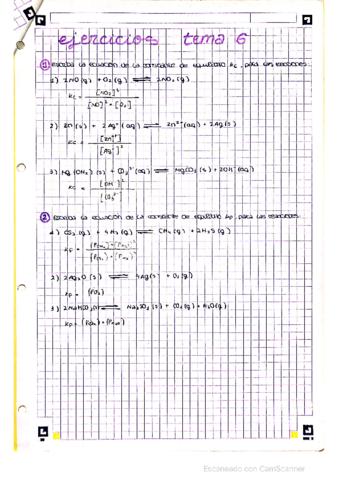 ejercicios tema 6
① Escriba la ecuación de la constante de equilibrio Kc, para las reacciones:
1) 2NO(g) + O₂(g) ⇌ 2NO₂(g)
Kc = [NO₂]² / [NO]² · [O₂]
2) Zn(s) + 2Ag⁺(aq) ⇌ Zn²⁺(aq) + 2Ag(s)
Kc = [Zn²⁺] / [Ag⁺]²
3) Mg(OH)₂(s) + CO₃²⁻(aq) ⇌ MgCO₃(s) + 2OH⁻(aq)
Kc = [OH⁻]² / [CO₃²⁻]
② Escriba la ecuación de la constante de equilibrio Kp, para las reacciones
1) CS₂(g) + 4H₂(g) ⇌ CH₄(g) + 2H₂S(g)
Kp =
2) 2Ag₂O(s) ⇌ 4Ag(s) + O₂(g)
Kp = (PO₂)
3) 2NaHCO₃(s) ⇌ Na₂CO₃(s) + CO₂(g) + H₂O(g)
Kp =
Escaneado con CamScanner